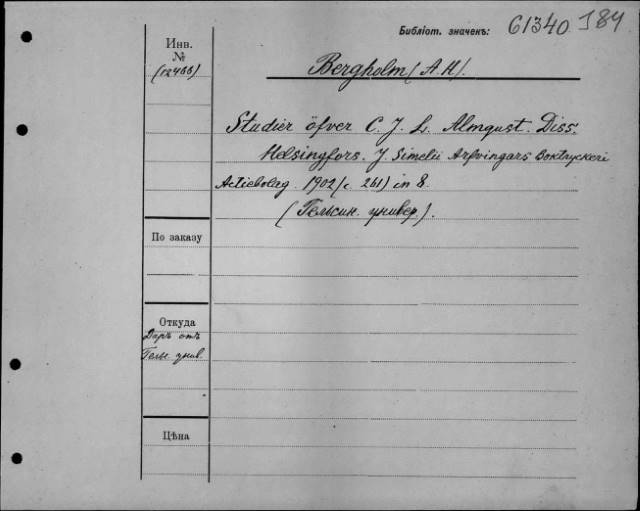 Библіот. значекъ: 61340 I84
Инв.
№
(12466)
Bergholm (A. H).
Studier öfver C. J. L. Almqust. Diss.
Helsingfors. J. Simelii Arfvingars Boktryckeri
Actiebolag. 1902 (c. 261) in 8.
(Гельсин. универ.).
По заказу
Откуда
Даръ отъ
Гельс. унив.
Цѣна